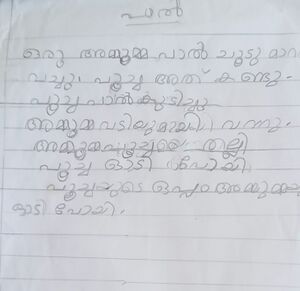 പാൽ
ഒരു അമ്മൂമ്മ പാൽ ചൂടു മാറ
വച്ചു. പൂച്ച അത് കണ്ടു.
പൂച്ച പാൽ കുടിച്ചു
അമ്മൂമ്മ വടിയുമായി വന്നു.
അമ്മൂമ്മ പൂച്ചയെ തല്ലി
പൂച്ച ഓടി പോയി
പൂച്ചയുടെ ഒപ്പം അമ്മൂമ്മയു
ഓടി പോയി.